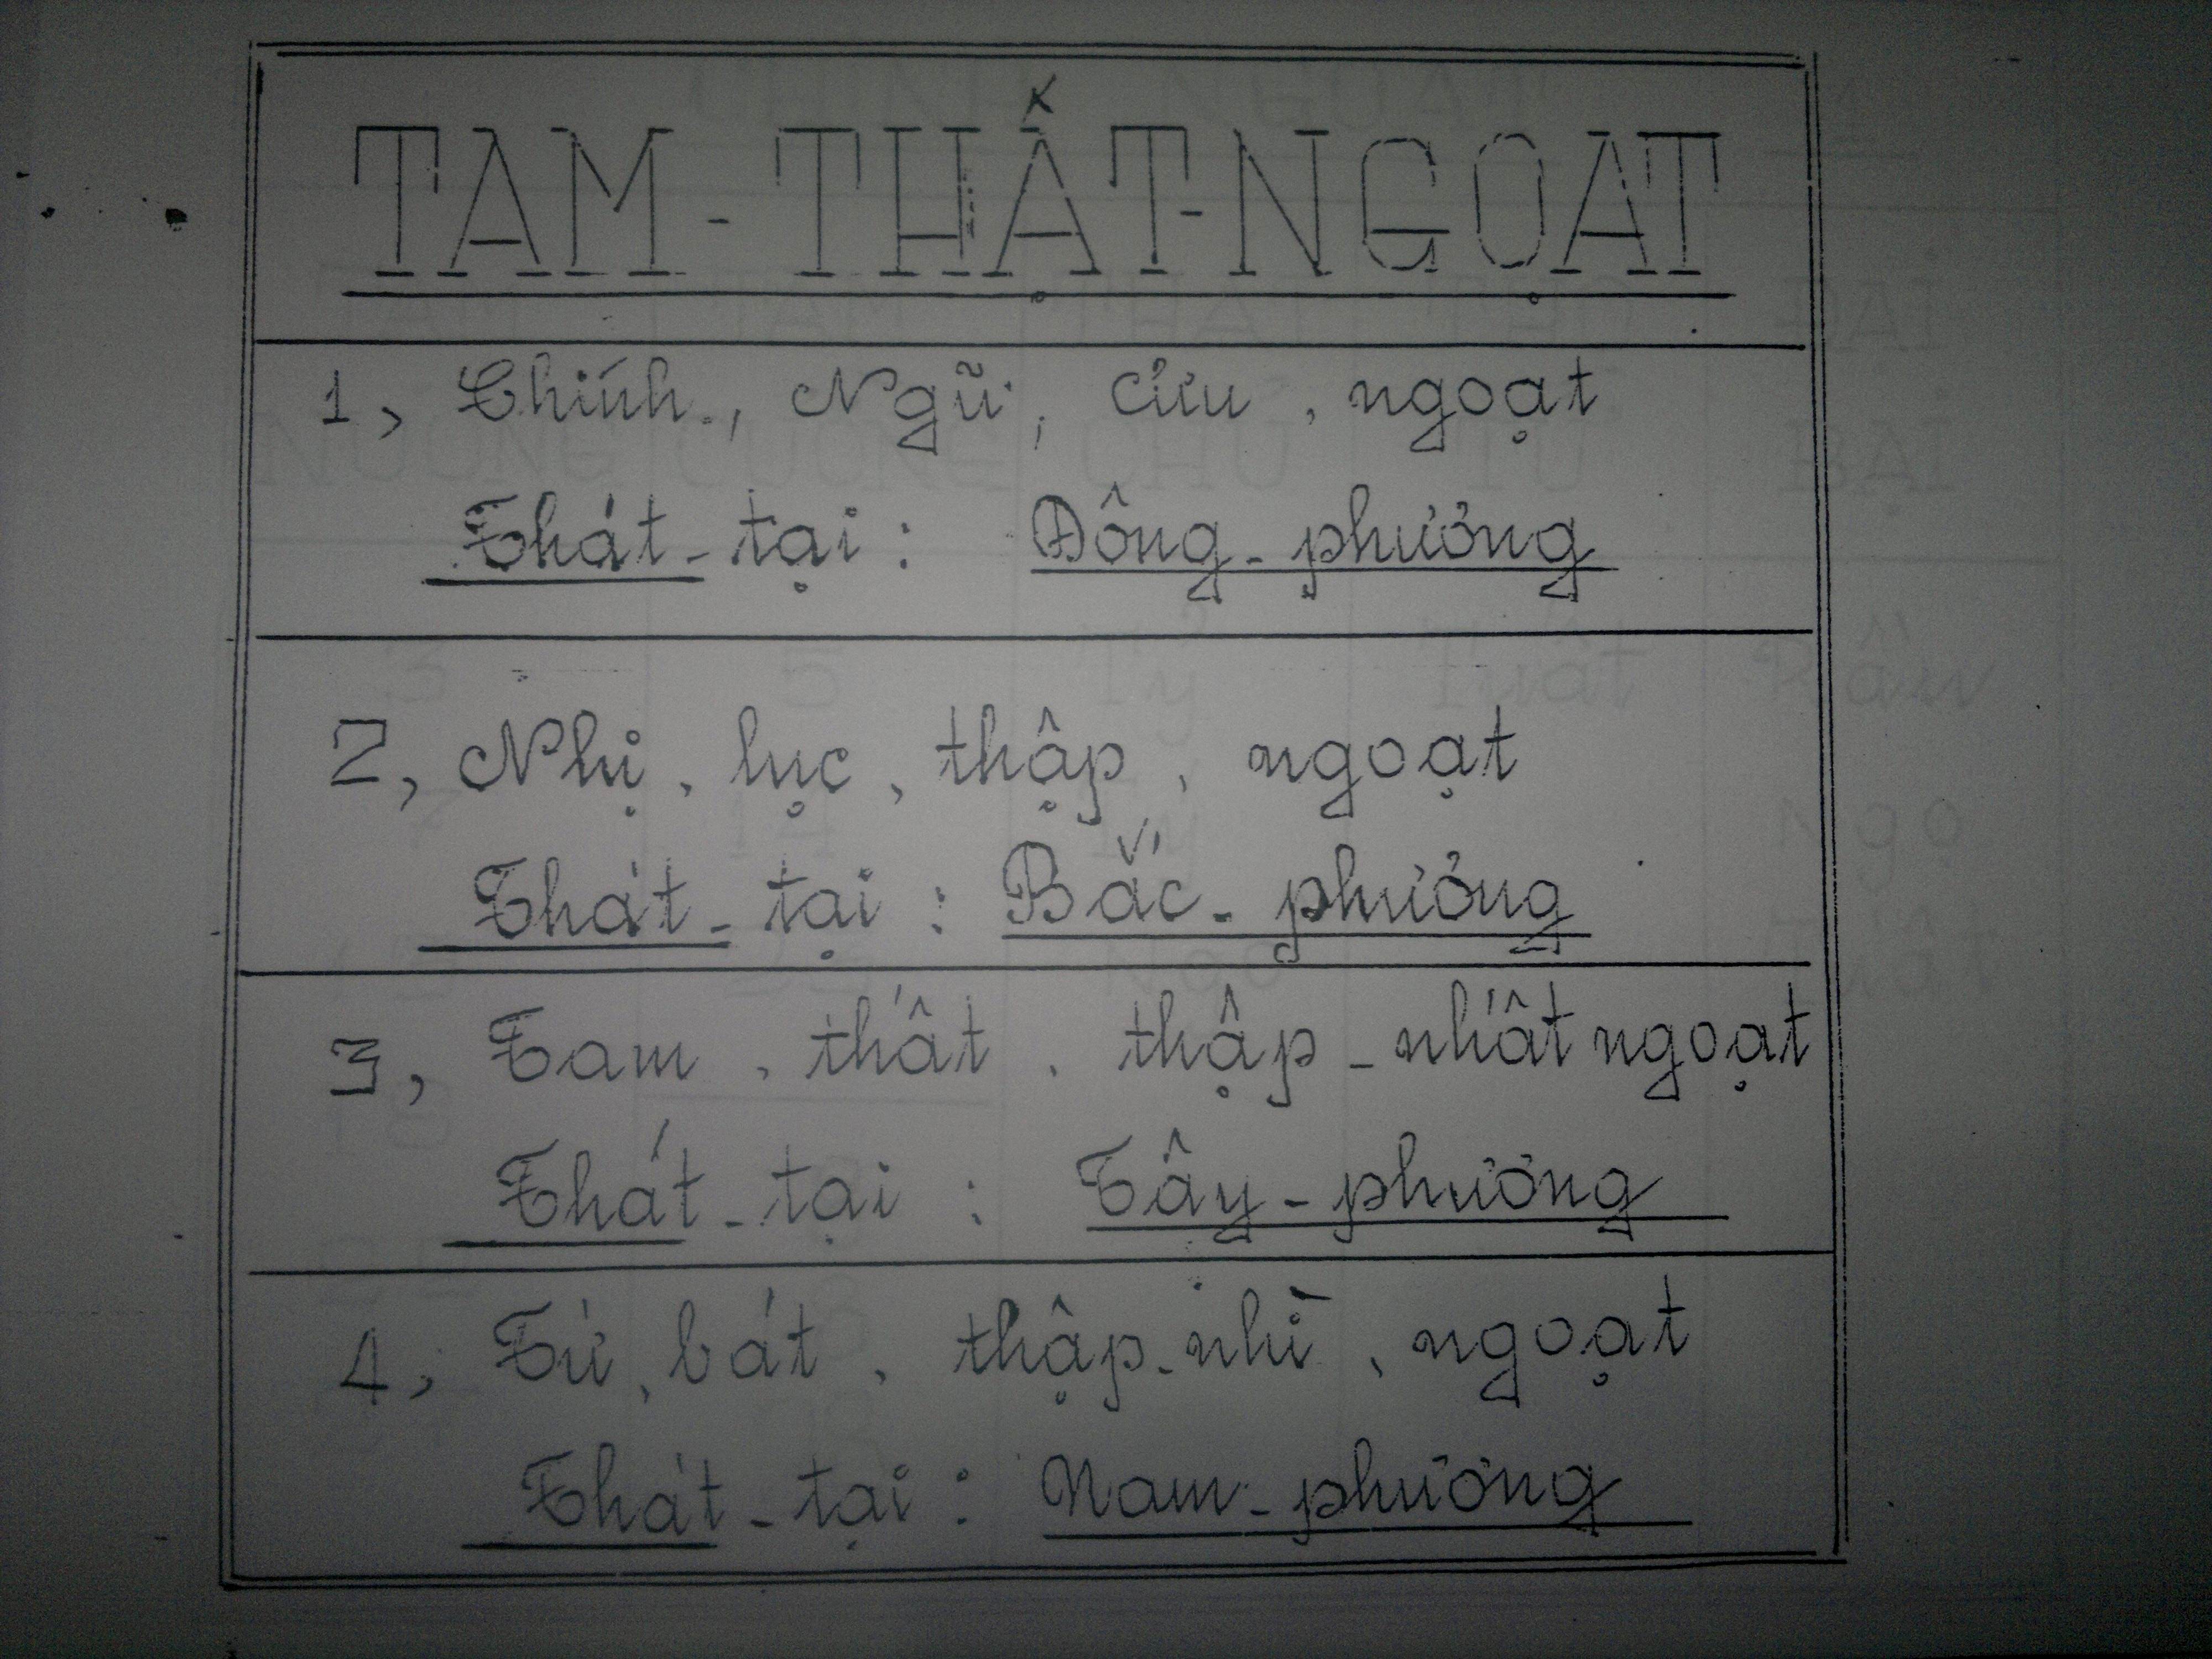 TAM - THẬT - NGOẠT
1, Chính, Ngũ, Cửu, ngoạt
Thát - tại : Đông - phương
2, Nhị, lục, thập, ngoạt
Thát - tại : Bắc - phương
3, Tam, thất, thập - nhất ngoạt
Thát - tại : Tây - phương
4, Tứ, bát, thập - nhì, ngoạt
Thát - tại : Nam - phương